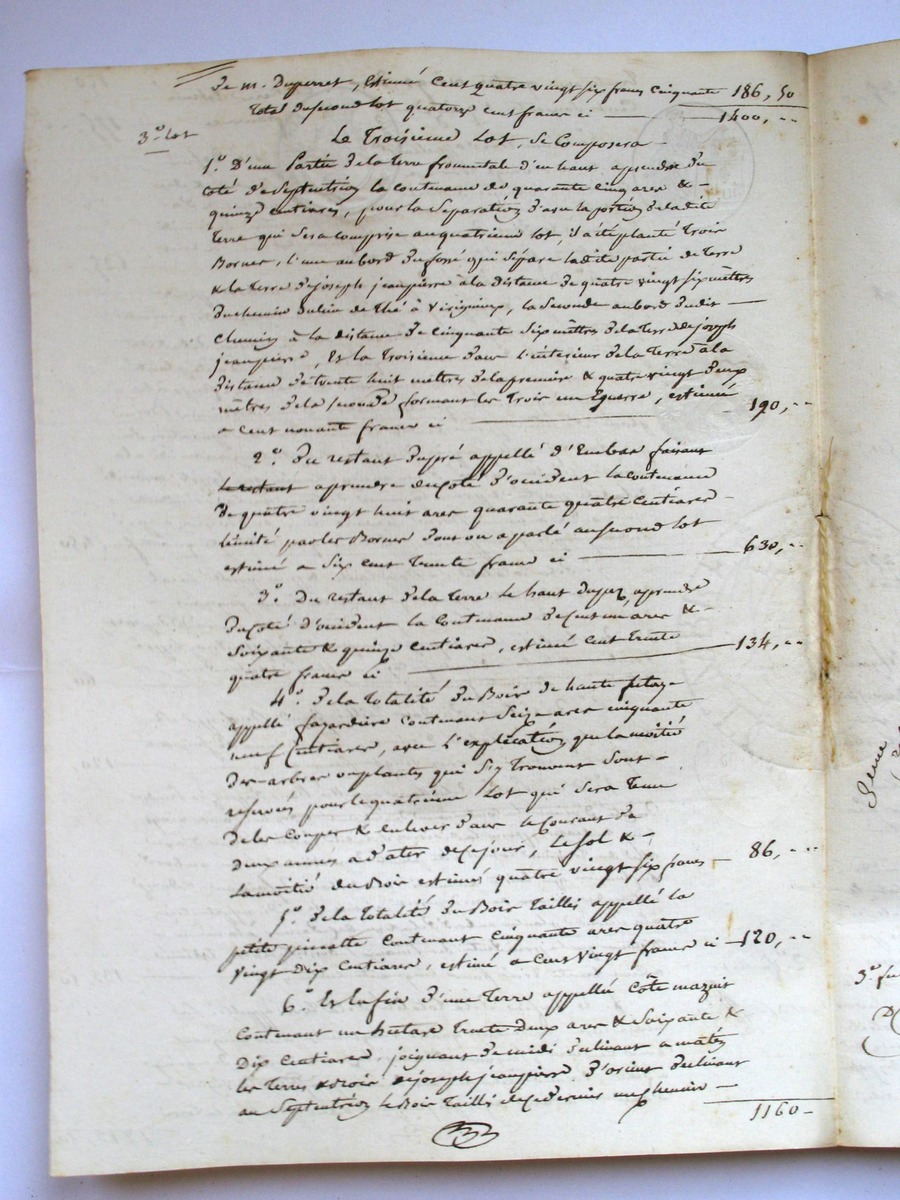 De m. Duperret, Estimé Cent quatre vingt six francs Cinquante 186, 50
Total du second lot quatorze cent francs ci 1400, "
3e. Lot
Le Troisième Lot, Se Composera
1o. D'une Partie de la terre fromentale d'en haut a prendre du
Coté de Septentrion la contenance de quarante cinq ares &
quinze centiares, pour la Separation d'avec la portion de la dite
Terre qui sera comprise au quatrième lot, il a été planté Trois
Bornes, l'une au bord du fossé qui sépare la dite partie de Terre
& la Terre de joseph jeanpierre à la distance de quatre vingt six mètres
du chemin de à Virignieux, la Seconde au bord du dit
Chemin à la distance de cinquante six mètres de la Terre de joseph
jeanpierre, Et la Troisième dans l'intérieur de la Terre à la
distance de trente huit mètres de la première & quatre vingt deux
mètres de la seconde formant les Trois une Equerre, estimée
a cent nonante francs ci 190, "
2o. Du restant du pré appellé d'Embas faisant
le restant a prendre du coté d'occident la contenance
de quatre vingt huit ares quarante quatre centiares
limité par les Bornes dont on a parlé au second lot
estimé a Six cent Trente francs ci 630, "
3o. Du restant de la Terre le haut du , a prendre
du coté d'occident la Contenance de Cent un ares &
Soixante & quinze centiares, estimé cent trente
quatre francs ci 134, "
4o. de la Totalité du Bois de haute futaye
appellé fayardière contenant Seize ares cinquante
neuf Centiares, avec l'explication que la moitié
des arbres ou plantes qui s'y trouvent sont
reservés pour le quatrième Lot qui sera Tenu
de les Couper & enlever dans le Courant de
deux années a dater de ce jour, Le sol &
la moitié du Bois estimés quatre vingt six francs 86, "
5o. de la Totalité du Bois Taillis appellé la
petite pinette Contenant Cinquante ares quatre
Vingt Dix Centiares, estimé a Cent vingt francs ci 120, "
6o. Et la fin d'une Terre appellée Côte mazuit
Contenant un hectare trente deux ares & Soixante &
Dix Centiares, joignant de midi du levant a matin
les Terres & bois de joseph jeanpierre d'orient du levant
au Septentrion le Bois Taillis de ce dernier un chemin
1160